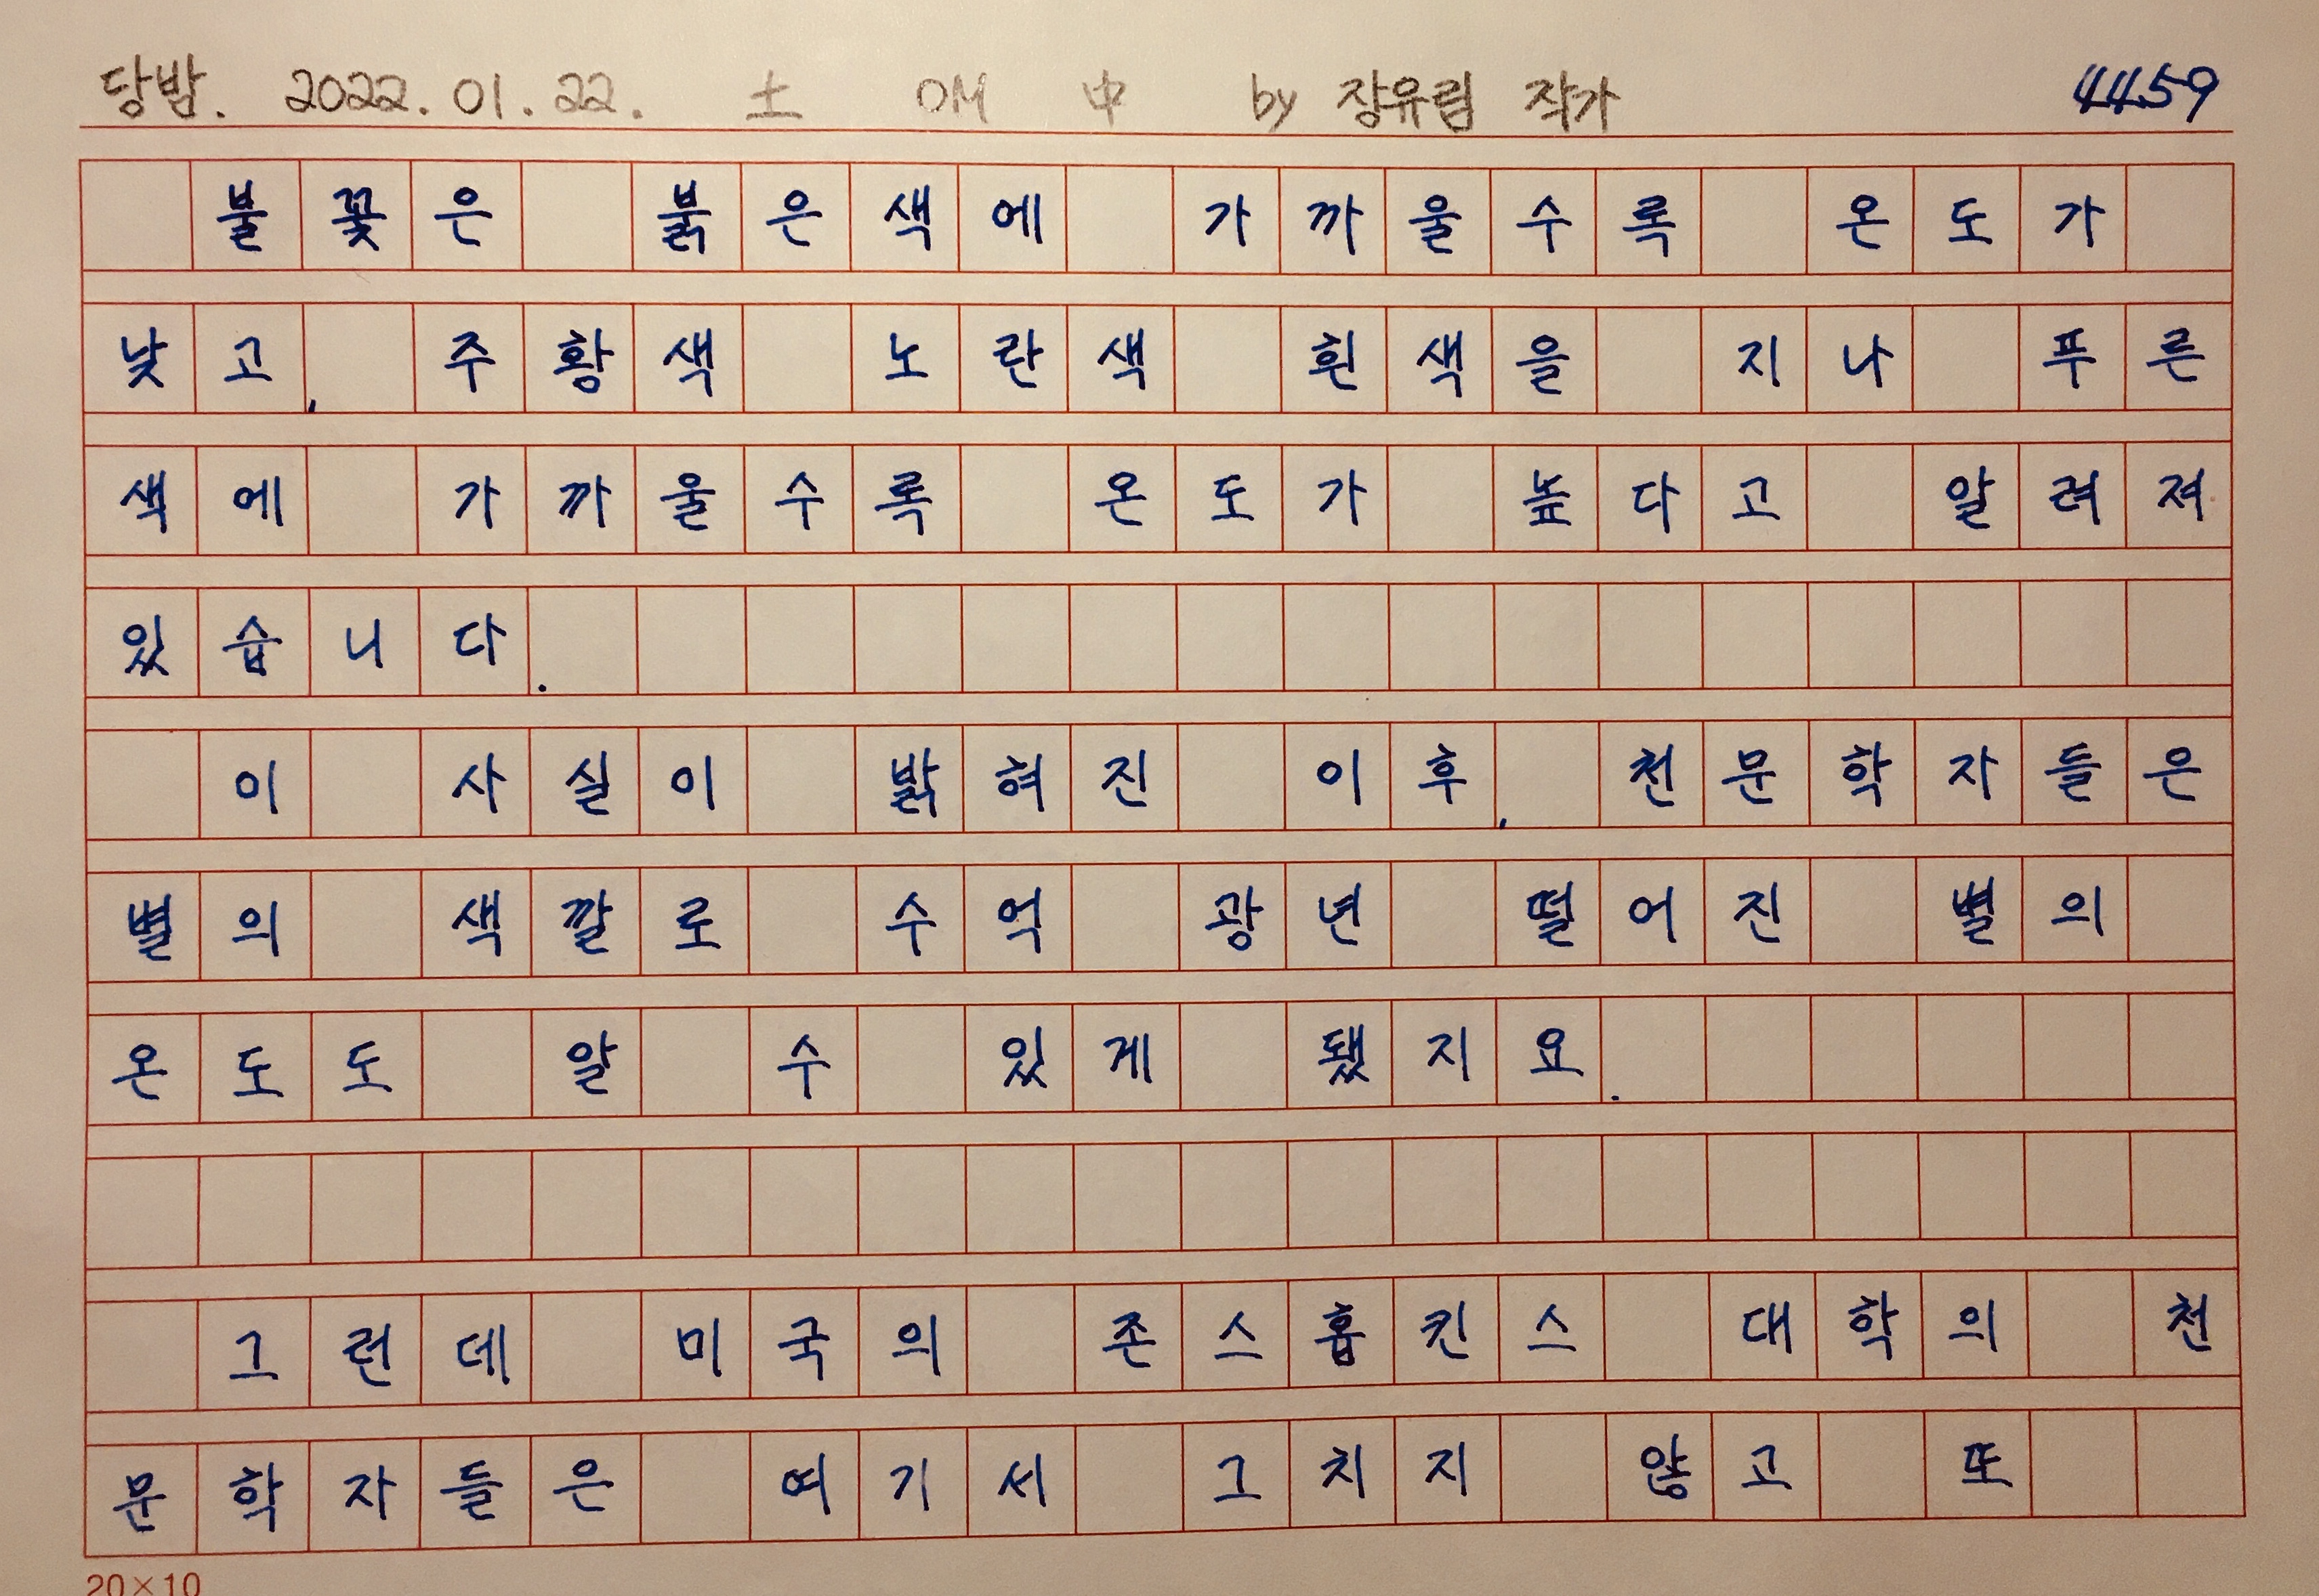 당밤. 2022. 01. 22. 土 OM 中 by 장유림 작가 4459
불꽃은 붉은색에 가까울수록 온도가
낮고, 주황색 노란색 흰색을 지나 푸른
색에 가까울수록 온도가 높다고 알려져
있습니다.
이 사실이 밝혀진 이후, 천문학자들은
별의 색깔로 수억 광년 떨어진 별의
온도도 알 수 있게 됐지요.
그런데 미국의 존스홉킨스 대학의 천
문학자들은 여기서 그치지 않고 또
20×10